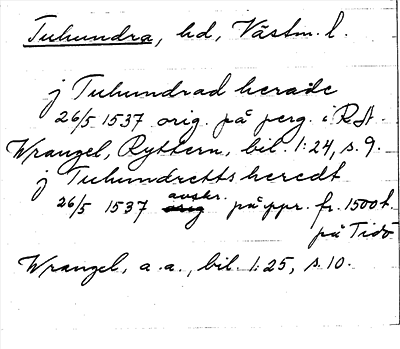 Tuhundra, hd, Västm. l.
j Tuhundrad herade
26/5 1537 orig. på perg. i RA.
Wrangel, Ryttern, bil. 1:24, s. 9.
j Tuhundretts heredt
26/5 1537 avskr. på ppr. fr. 1500t.
på Tidö
Wrangel, a. a., bil. 1:25, s. 10.